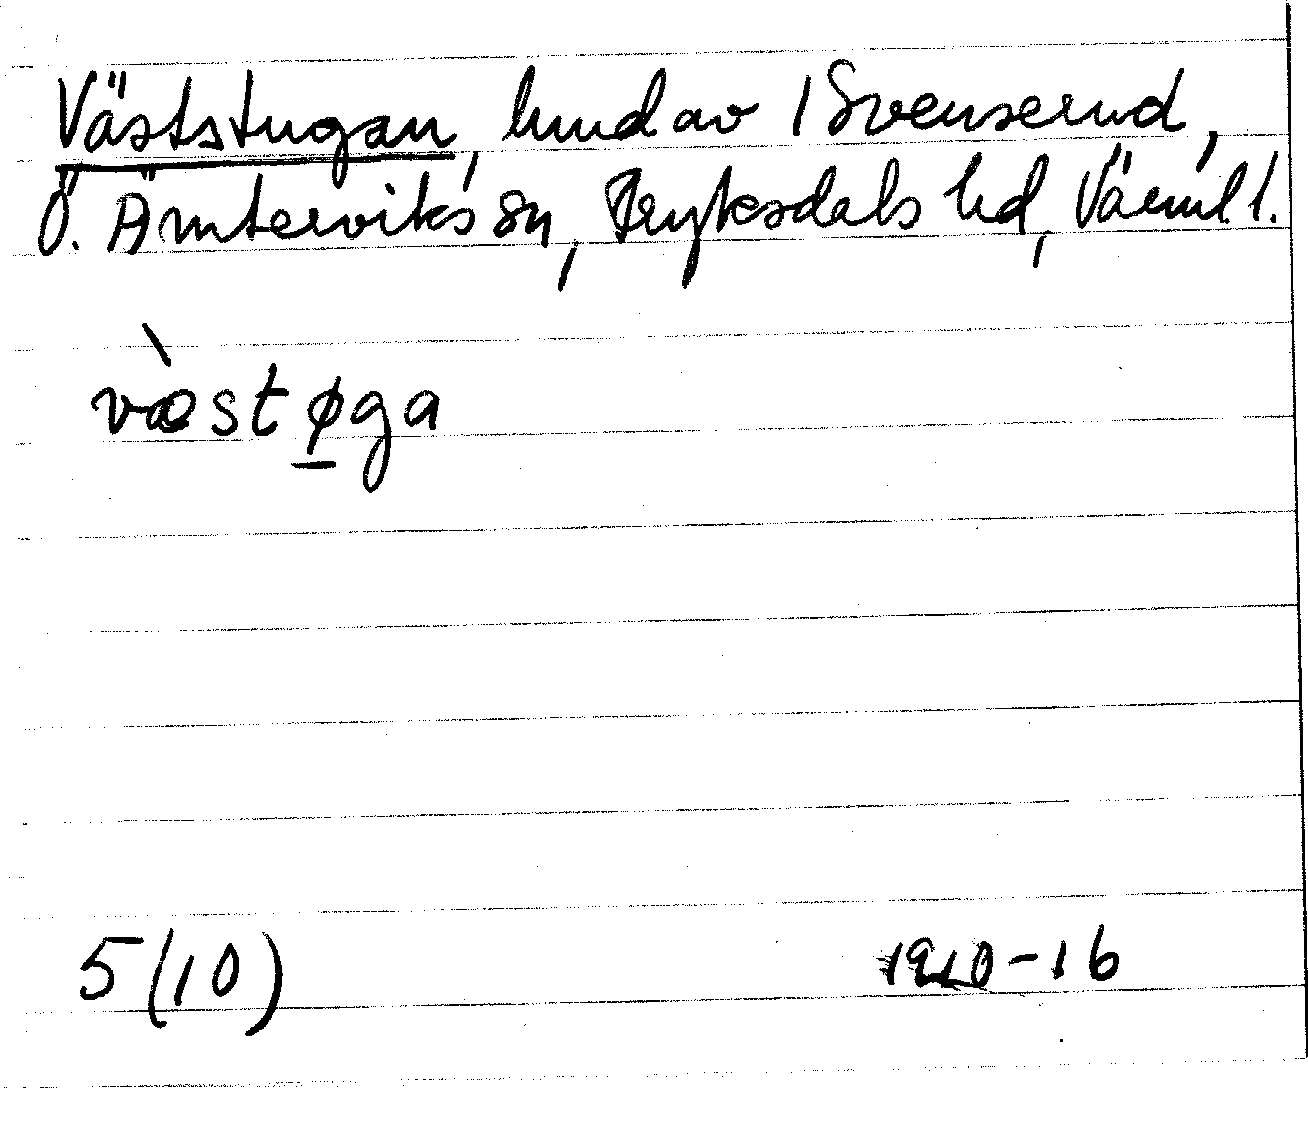 Väststugan, hmd av 1 Svenserud,
Ö. Ämterviks sn, Fryksdals hd, Värml l.
væ̀stø̱ga
5(10)
1910-16